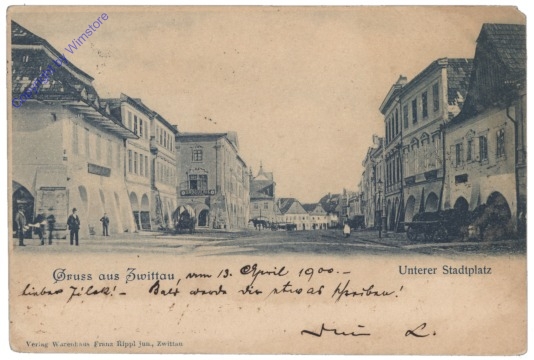 Wimstore
Gruss aus Zwittau, vom 13. April 1900.-
Unterer Stadtplatz
Bald werde Dir etwas schreiben!
Dein L.
Verlag Warenhaus Franz Rippl jun., Zwittau